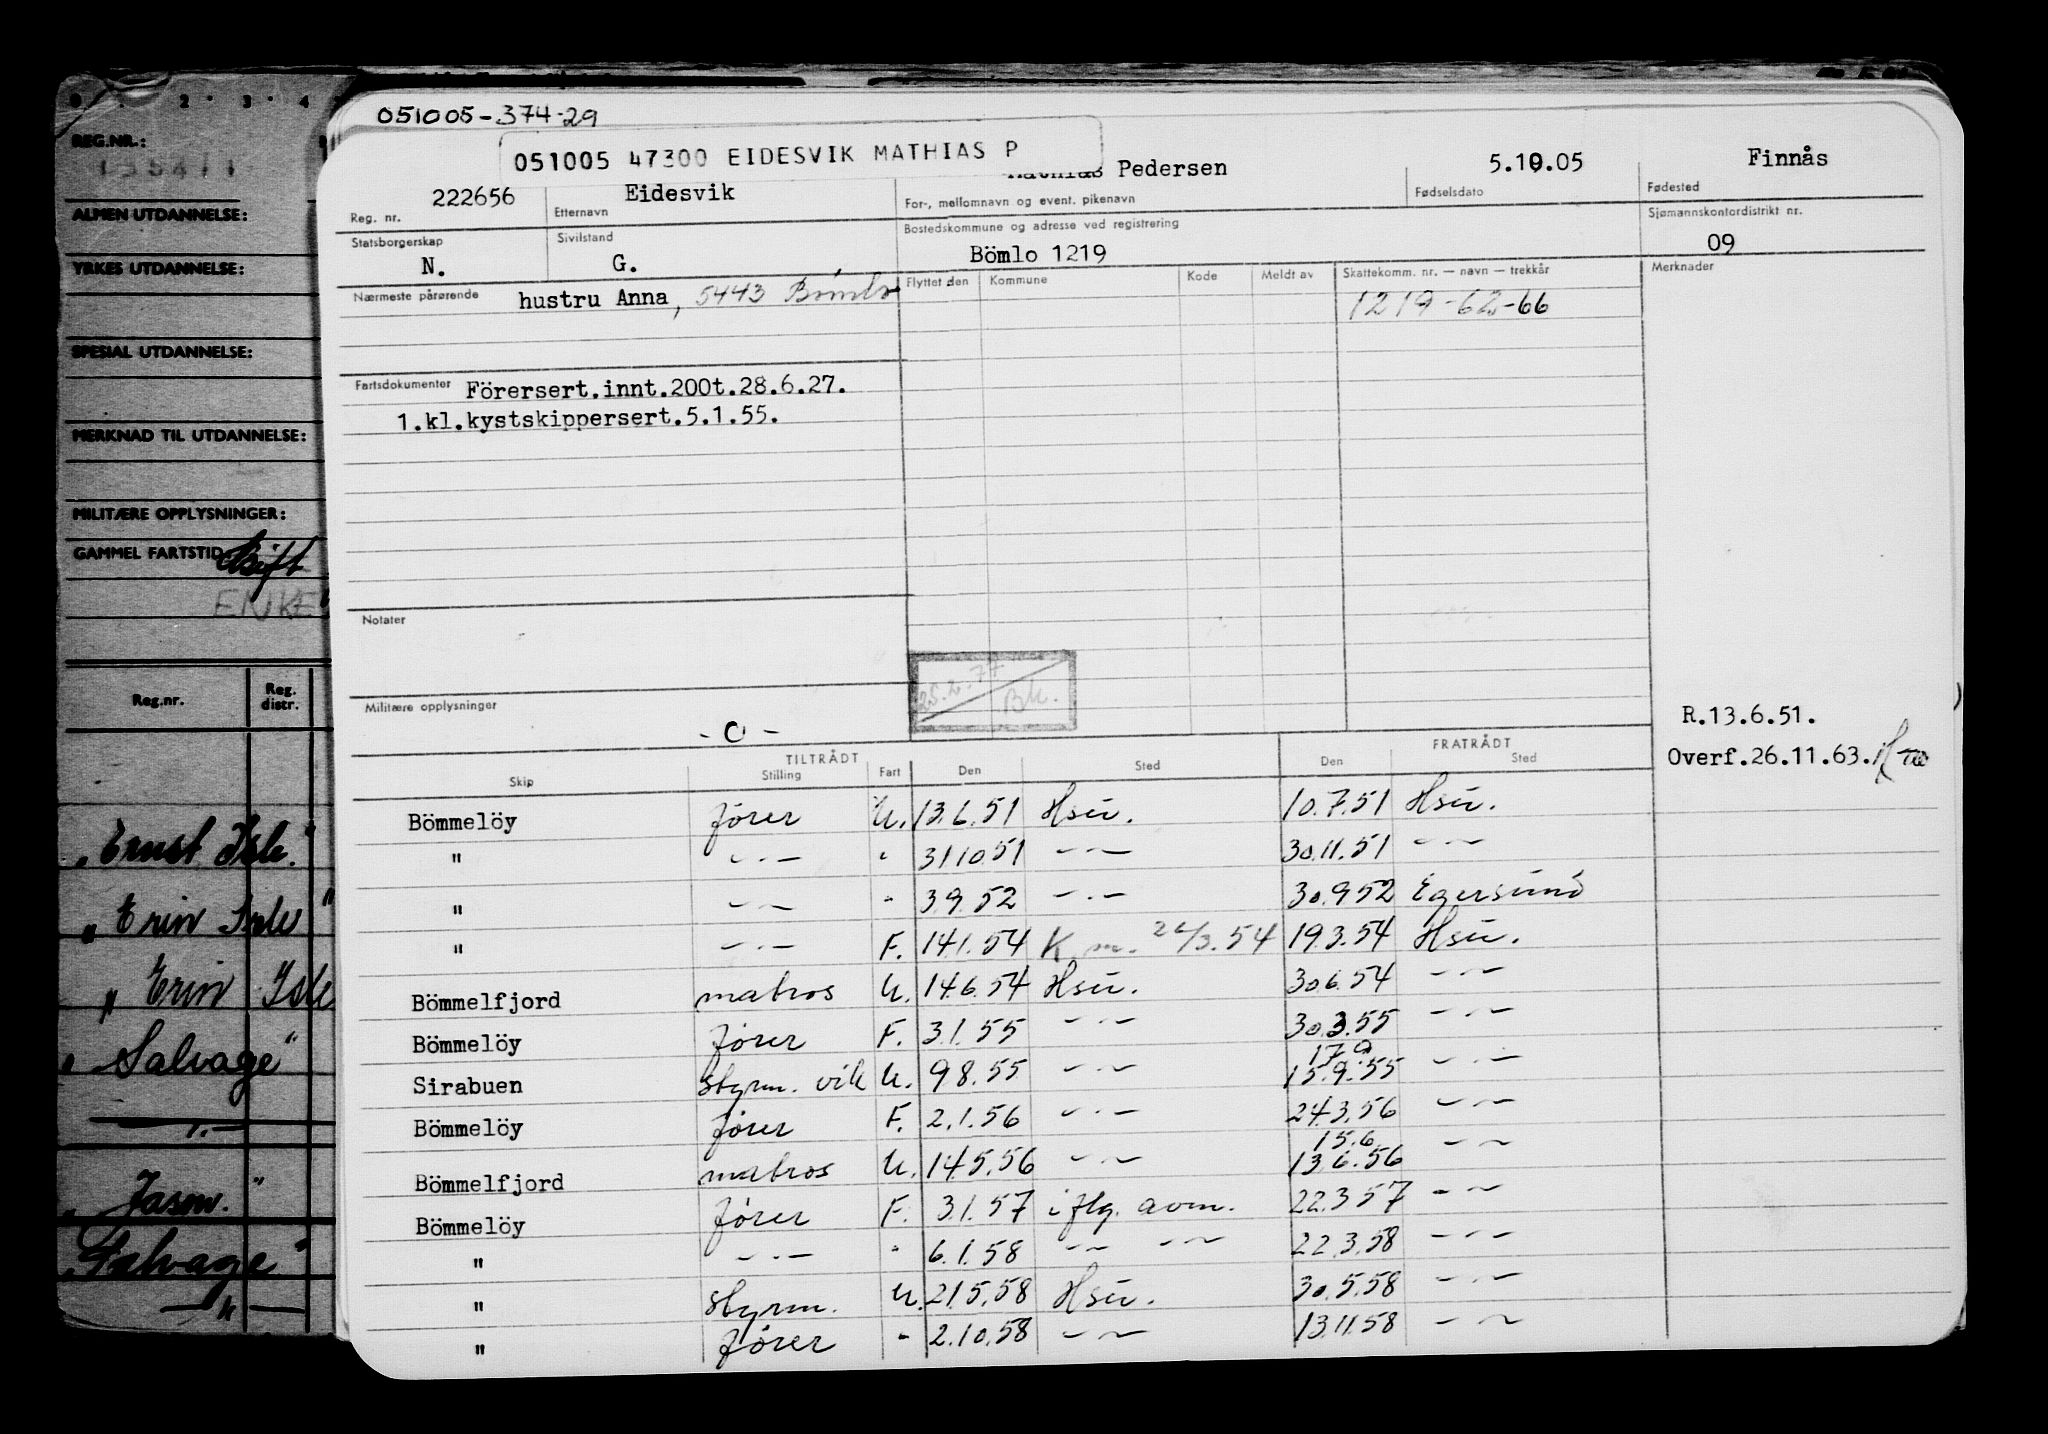 051005-374-29
051005 47300 EIDESVIK MATHIAS P
Pedersen 5.10.05 Finnås
222656 Eidesvik
Reg. nr. Etternavn For-, mellomnavn og event. pikenavn Fødselsdato Fødested
Statsborgerskap Sivilstand Bostedskommune og adresse ved registrering Sjømannskontordistrikt nr.
N. G. Bömlo 1219 09
Nærmeste pårørende hustru Anna, 5443 Bömlo
Flyttet den Kommune Kode Meldt av Skattekomm. nr. — navn — trekkår Merknader
1219-62-66
Fartsdokumenter Förersert.innt.200t.28.6.27.
1.kl.kystskippersert.5.1.55.
Notater
25.2.77 Bk.
Militære opplysninger
- O -
R.13.6.51.
Overf.26.11.63.
TILTRÅDT FRATRÅDT
Skip Stilling Fart Den Sted Den Sted
Bömmelöy fører U. 13.6.51 Hsu. 10.7.51 Hsu.
" —·— " 31.10.51 —·— 30.11.51 —·—
" —·— " 3.9.52 —·— 30.9.52 Egersund
" —·— F. 14.1.54 K.m. 26/3.54 19.3.54 Hsu.
Bömmelfjord matros U. 14.6.54 Hsu. 30.6.54 —·—
Bömmelöy fører F. 3.1.55 —·— 30.3.55 —·—
17.9
Sirabuen styrm. vik U. 9.8.55 —·— 15.9.55 —·—
Bömmelöy fører F. 2.1.56 —·— 24.3.56 —·—
15.6
Bömmelfjord matros U. 14.5.56 —·— 13.6.56 —·—
Bömmelöy fører F. 3.1.57 iflg. avm. 22.3.57 —·—
" —·— " 6.1.58 —·— —·— 22.3.58 —·—
" styrm. U. 21.5.58 Hsu. 30.5.58 —·—
" fører " 2.10.58 —·— 13.11.58 —·—
0 · 2 · 3 · 4
REG.NR.:
ALMEN UTDANNELSE:
YRKES UTDANNELSE:
SPESIAL UTDANNELSE:
MERKNAD TIL UTDANNELSE:
MILITÆRE OPPLYSNINGER:
GAMMEL FARTSTID
Gift
ENKE
Reg.nr. Reg. distr.
"Ernst Isle."
"Erin Isle"
"Erin Isle
"Salvage"
—"—
"Jason."
"Salvage"
—"—